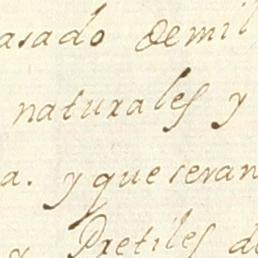 asado Demil
naturales y
a. y que seran
y Pretiles de